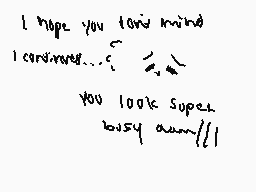 I hope you don't mind
I continued...
you look super
busy aum///